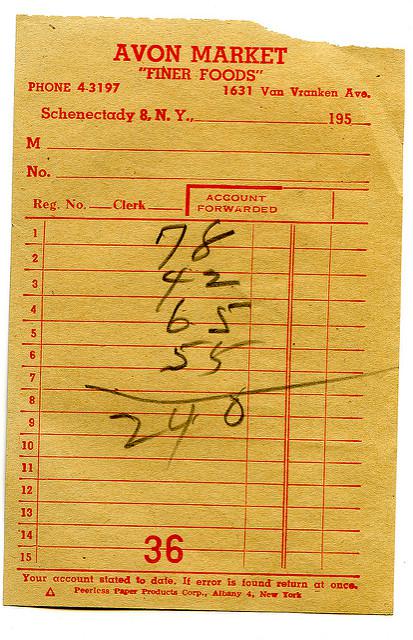 AVON MARKET
"FINER FOODS"
PHONE 4-3197 1631 Van Vranken Ave.
Schenectady 8, N. Y., 195
M
No.
Reg. No. Clerk ACCOUNT FORWARDED
1
78
2
3
42
4
65
5
6
55
7
8
240
9
10
11
12
13
14
36
15
Your account stated to date. If error is found return at once.
Peerless Paper Products Corp., Albany 4, New York